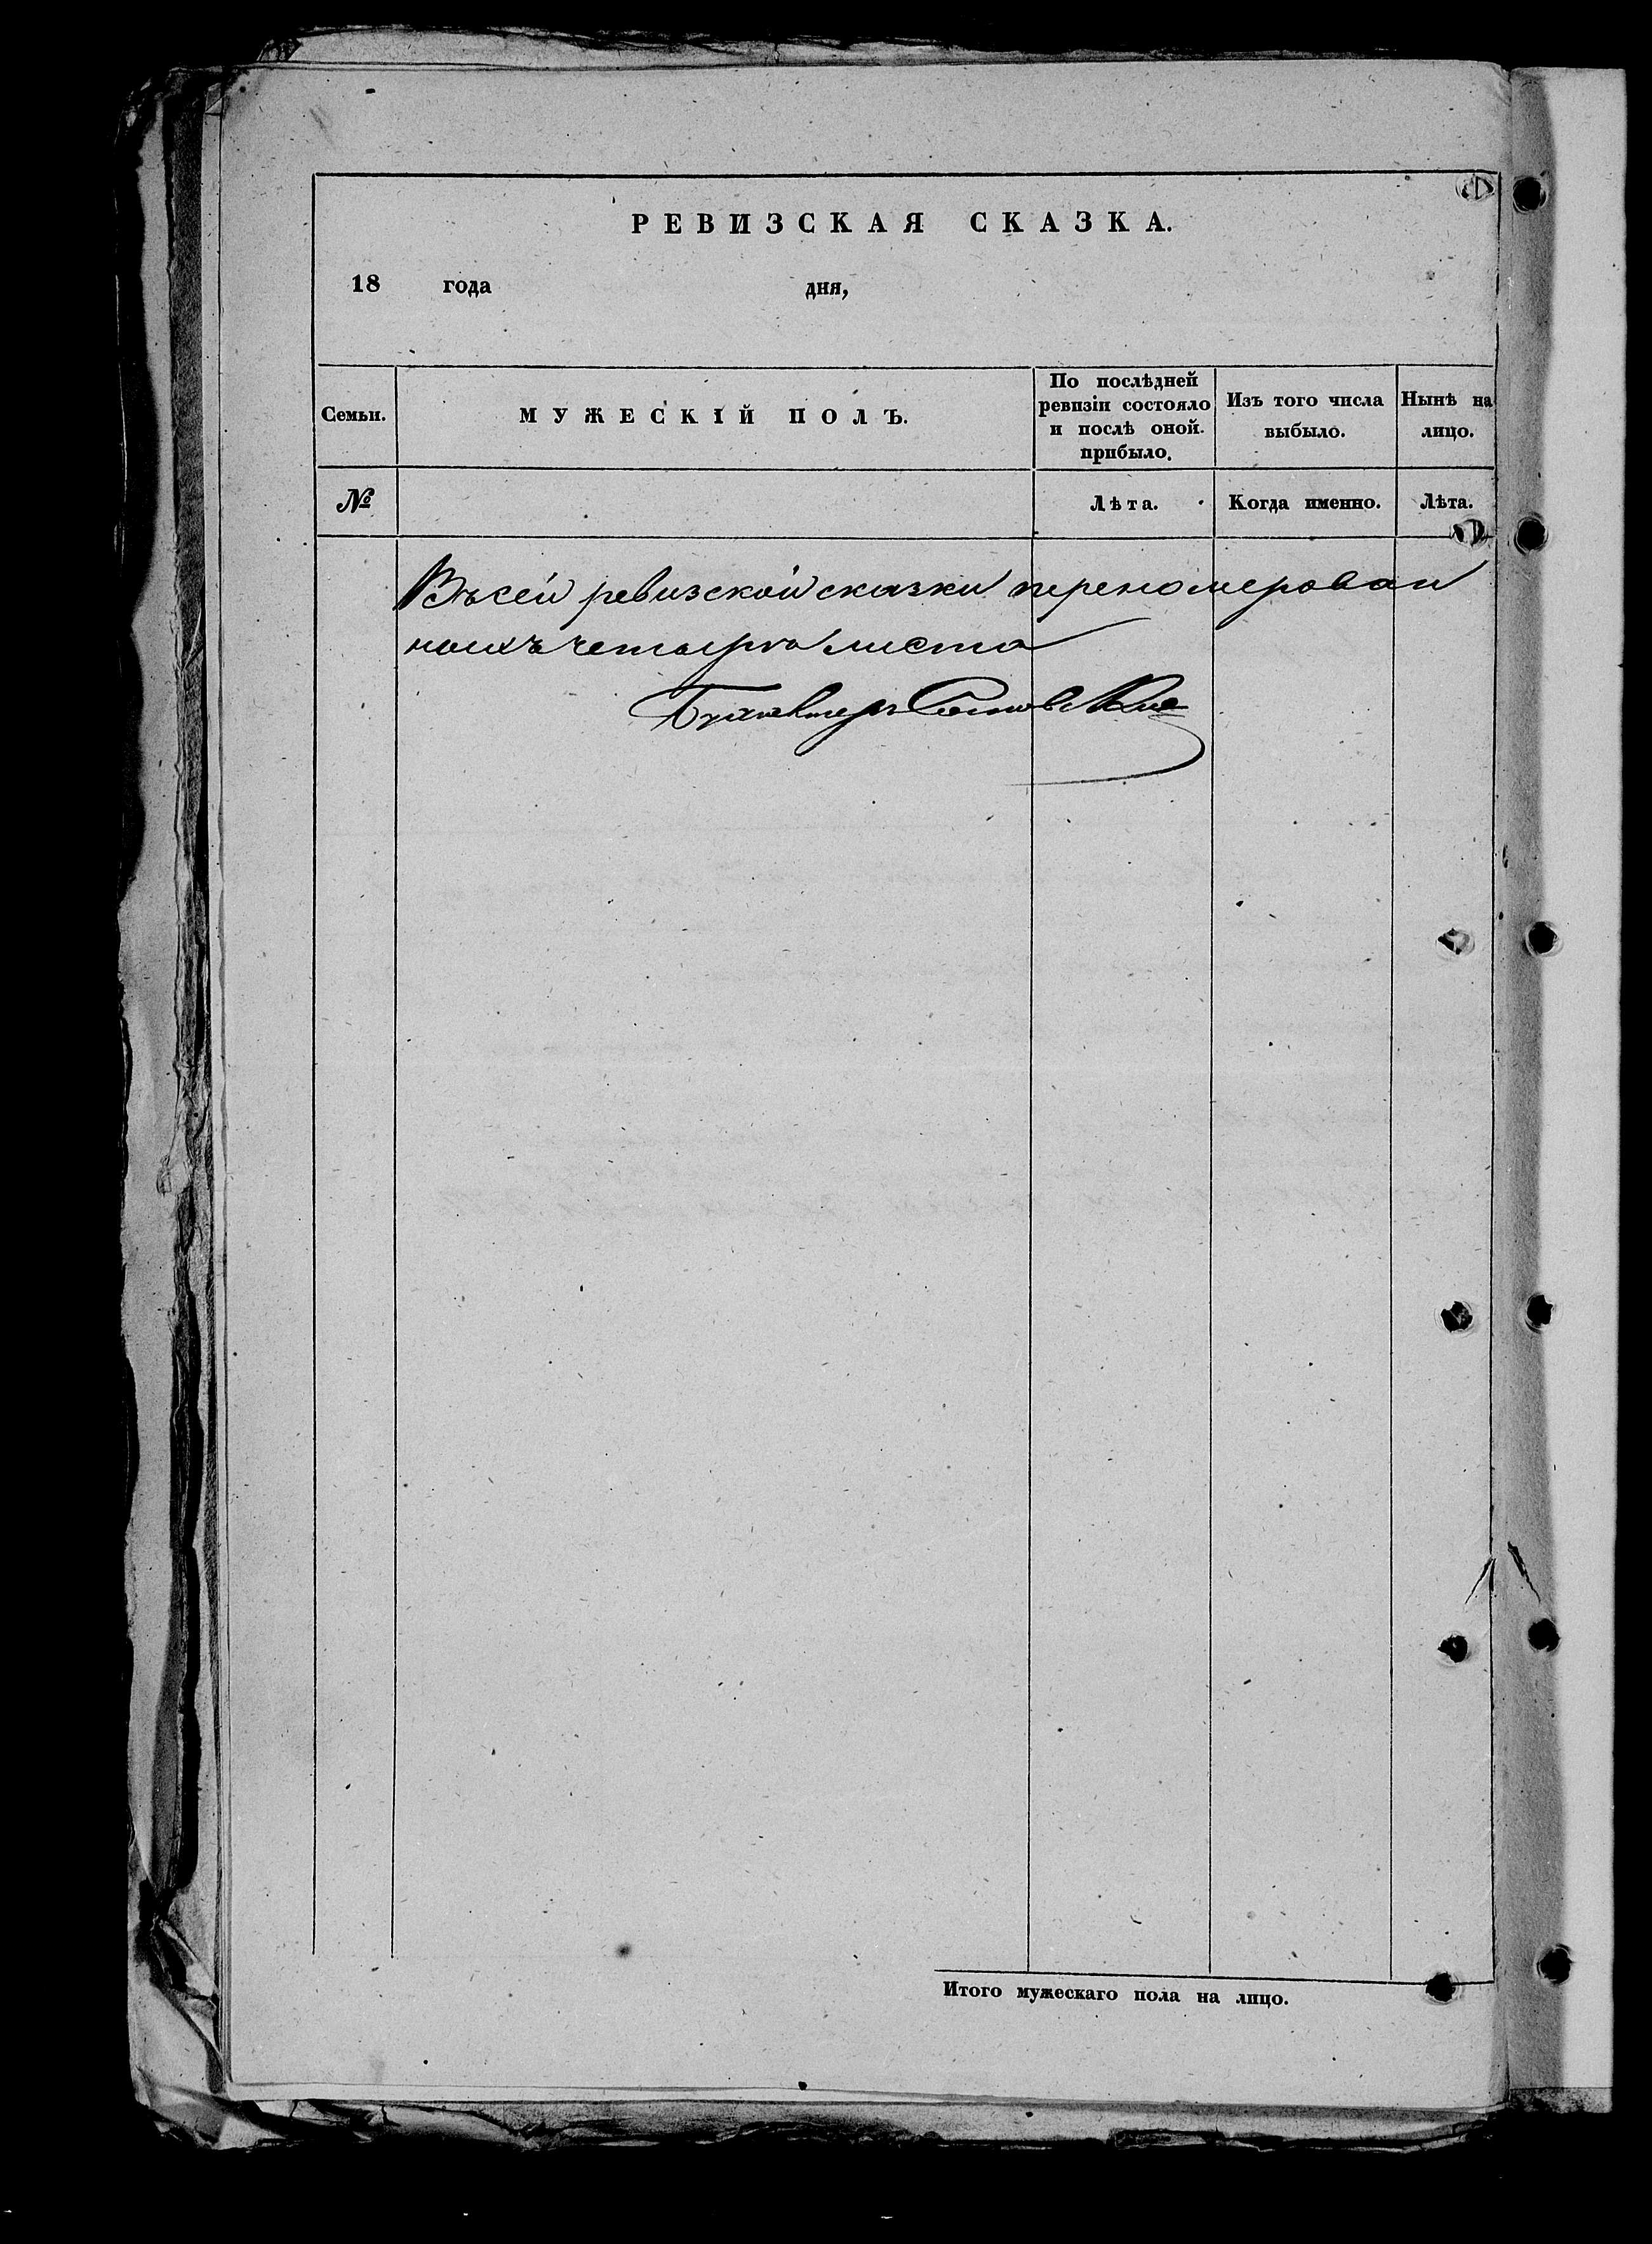 РЕВИЗСКАЯ СКАЗКА.
18 года дня,
Семьи.
МУЖЕСКІЙ ПОЛЪ.
По послѣдней
ревизіи состояло
и послѣ оной
прибыло.
Изъ того числа
выбыло.
Нынѣ на
лицо.
№
Лѣта.
Когда именно.
Лѣта.
Въ сей ревизской сказки переномерован
ныхъ четыре листа
Бухгалтеръ
Итого мужескаго пола на лицо.